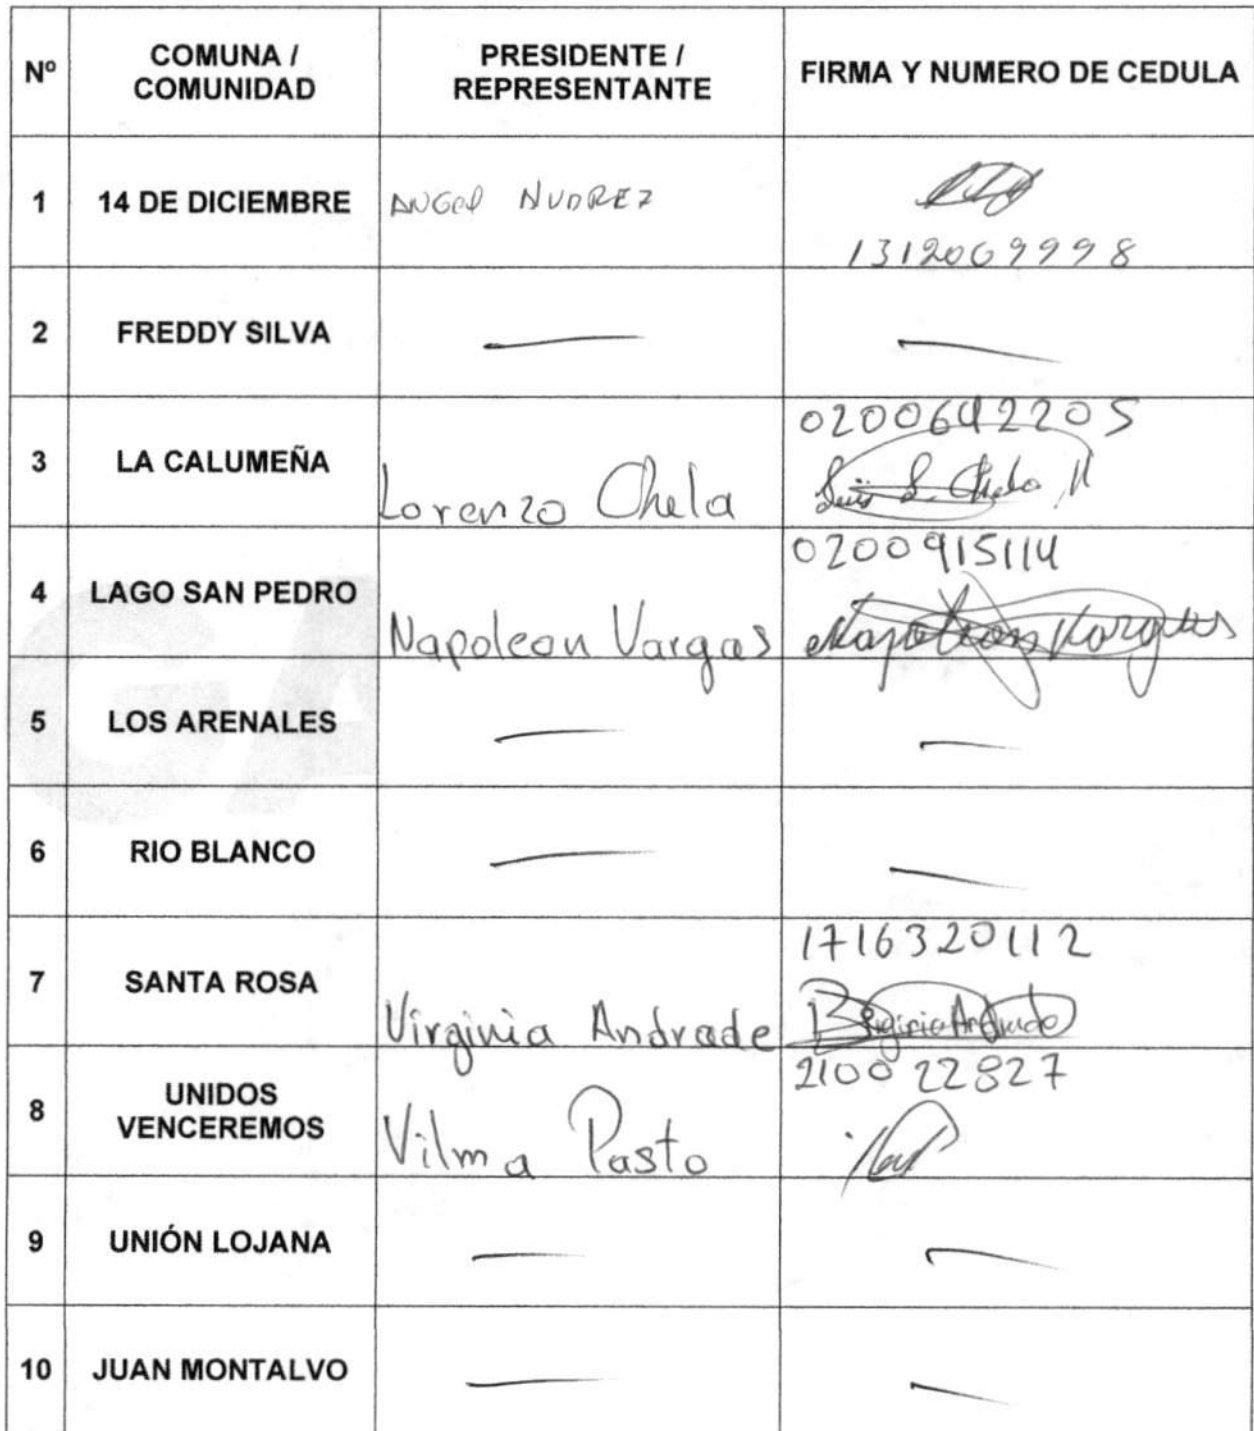 Nº
COMUNA /
COMUNIDAD
PRESIDENTE /
REPRESENTANTE
FIRMA Y NUMERO DE CEDULA
1
14 DE DICIEMBRE
ANGel
1312069998
2
FREDDY SILVA
—
—
3
LA CALUMEÑA
Lorenzo Chela
0200642205
4
LAGO SAN PEDRO
Napoleon Vargas
0200915114
Napoleon Vargas
5
LOS ARENALES
—
—
6
RIO BLANCO
—
—
7
SANTA ROSA
Virginia Andrade
1716320112
8
UNIDOS
VENCEREMOS
Vilma Pasto
210022827
9
UNIÓN LOJANA
—
—
10
JUAN MONTALVO
—
—